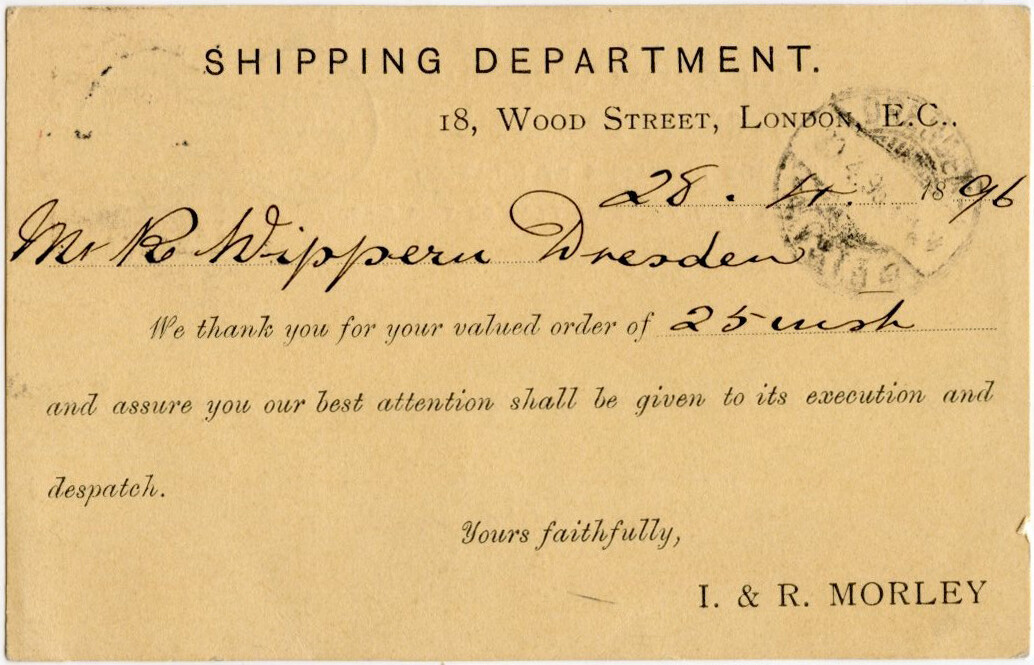 SHIPPING DEPARTMENT.
18, WOOD STREET, LONDON, E.C..
28 . 4 . 1896
Mr R Wippern Dresden
We thank you for your valued order of 25 inst
and assure you our best attention shall be given to its execution and
despatch.
Yours faithfully,
I. & R. MORLEY